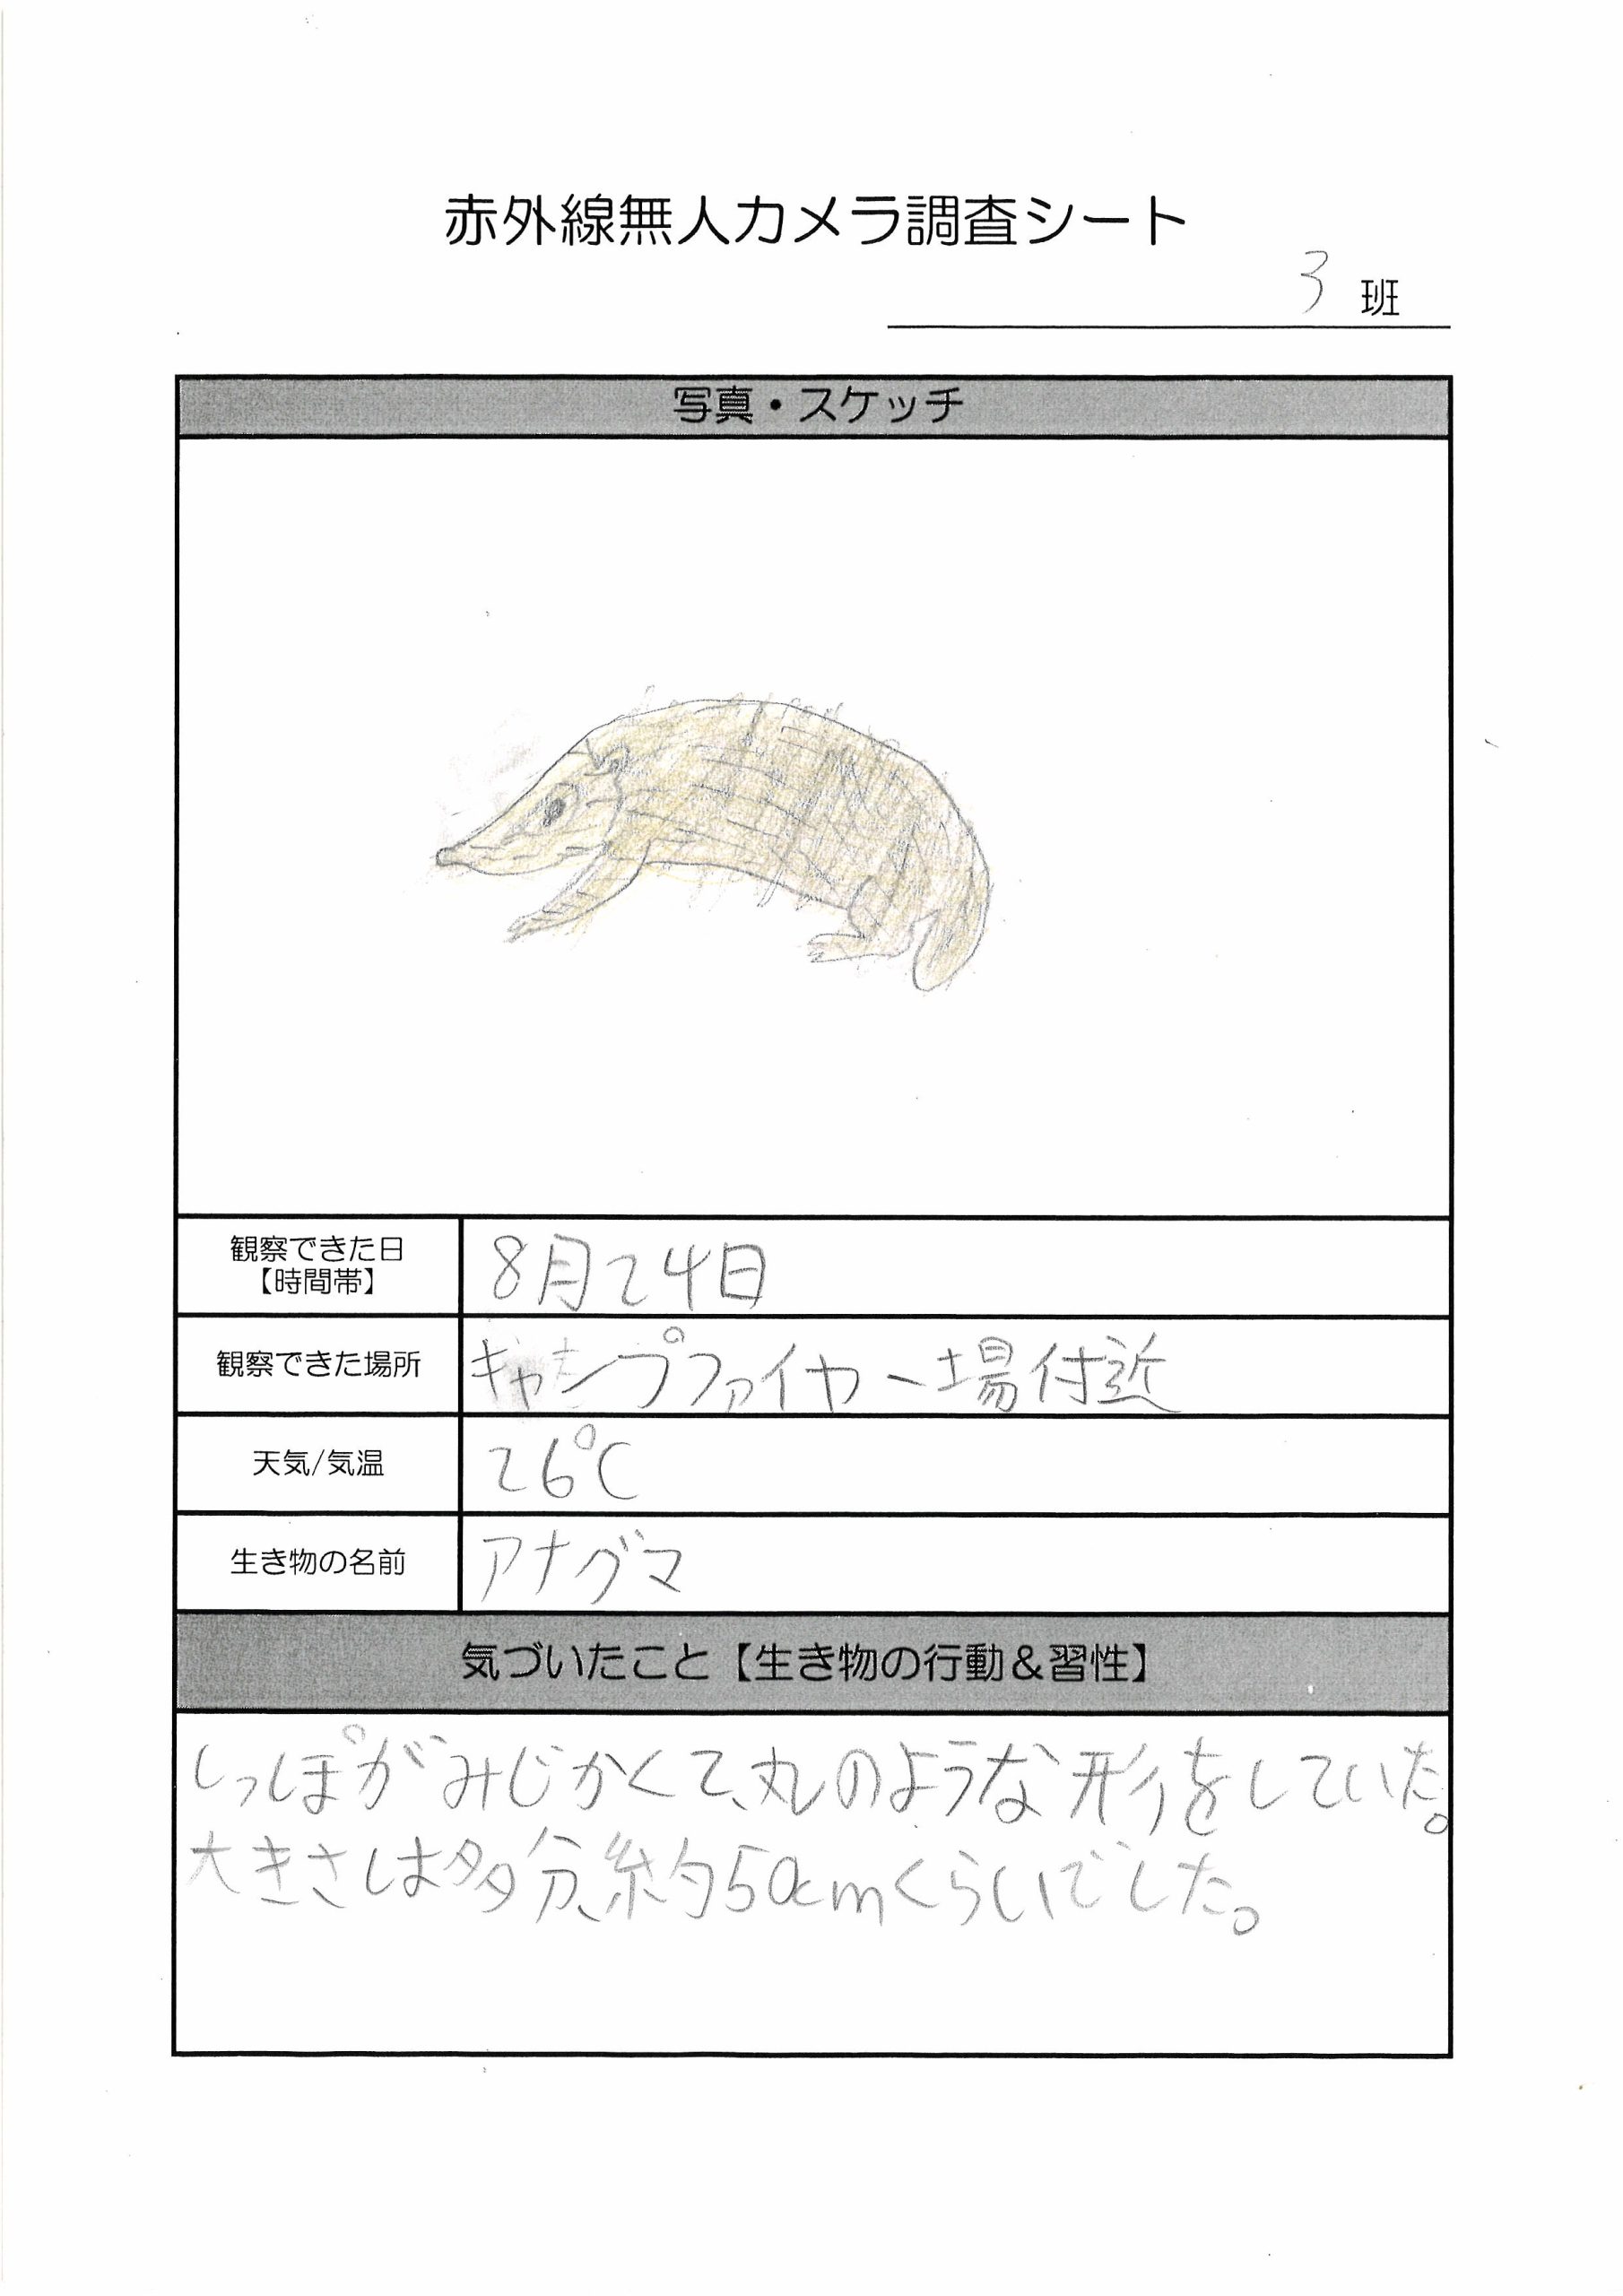 赤外線無人カメラ調査シート
3 班
写真・スケッチ
観察できた日
【時間帯】
8月24日
観察できた場所
キャンプファイヤー場付近
天気/気温
26℃
生き物の名前
アナグマ
気づいたこと【生き物の行動&習性】
しっぽがみじかくて、丸のような形をしていた。
大きさは多分、約50cmくらいでした。